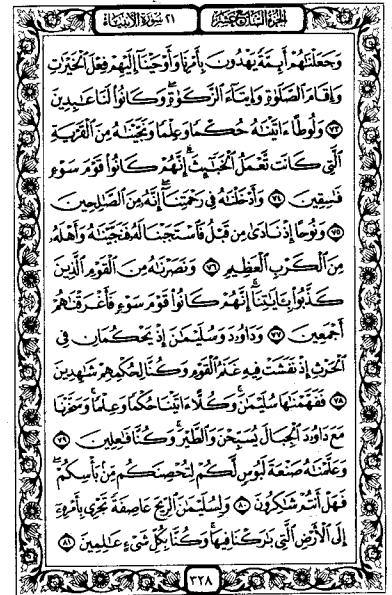 الجزء السابع عشر
٢١ سورة الأنبياء
وَجَعَلْنَٰهُمْ أَئِمَّةً يَهْدُونَ بِأَمْرِنَا وَأَوْحَيْنَآ إِلَيْهِمْ فِعْلَ ٱلْخَيْرَٰتِ
وَإِقَامَ ٱلصَّلَوٰةِ وَإِيتَآءَ ٱلزَّكَوٰةِ ۖ وَكَانُوا۟ لَنَا عَٰبِدِينَ
٧٣ وَلُوطًا ءَاتَيْنَٰهُ حُكْمًا وَعِلْمًا وَنَجَّيْنَٰهُ مِنَ ٱلْقَرْيَةِ
ٱلَّتِى كَانَت تَّعْمَلُ ٱلْخَبَٰٓئِثَ ۗ إِنَّهُمْ كَانُوا۟ قَوْمَ سَوْءٍ
فَٰسِقِينَ ٧٤ وَأَدْخَلْنَٰهُ فِى رَحْمَتِنَآ ۖ إِنَّهُۥ مِنَ ٱلصَّٰلِحِينَ
٧٥ وَنُوحًا إِذْ نَادَىٰ مِن قَبْلُ فَٱسْتَجَبْنَا لَهُۥ فَنَجَّيْنَٰهُ وَأَهْلَهُۥ
مِنَ ٱلْكَرْبِ ٱلْعَظِيمِ ٧٦ وَنَصَرْنَٰهُ مِنَ ٱلْقَوْمِ ٱلَّذِينَ
كَذَّبُوا۟ بِـَٔايَٰتِنَآ ۚ إِنَّهُمْ كَانُوا۟ قَوْمَ سَوْءٍ فَأَغْرَقْنَٰهُمْ
أَجْمَعِينَ ٧٧ وَدَاوُۥدَ وَسُلَيْمَٰنَ إِذْ يَحْكُمَانِ فِى
ٱلْحَرْثِ إِذْ نَفَشَتْ فِيهِ غَنَمُ ٱلْقَوْمِ وَكُنَّا لِحُكْمِهِمْ شَٰهِدِينَ
٧٨ فَفَهَّمْنَٰهَا سُلَيْمَٰنَ ۚ وَكُلًّا ءَاتَيْنَا حُكْمًا وَعِلْمًا ۚ وَسَخَّرْنَا
مَعَ دَاوُۥدَ ٱلْجِبَالَ يُسَبِّحْنَ وَٱلطَّيْرَ ۚ وَكُنَّا فَٰعِلِينَ ٧٩
وَعَلَّمْنَٰهُ صَنْعَةَ لَبُوسٍ لَّكُمْ لِتُحْصِنَكُم مِّنۢ بَأْسِكُمْ ۖ
فَهَلْ أَنتُمْ شَٰكِرُونَ ٨٠ وَلِسُلَيْمَٰنَ ٱلرِّيحَ عَاصِفَةً تَجْرِى بِأَمْرِهِۦٓ
إِلَى ٱلْأَرْضِ ٱلَّتِى بَٰرَكْنَا فِيهَا ۚ وَكُنَّا بِكُلِّ شَىْءٍ عَٰلِمِينَ ٨١
٣٢٨